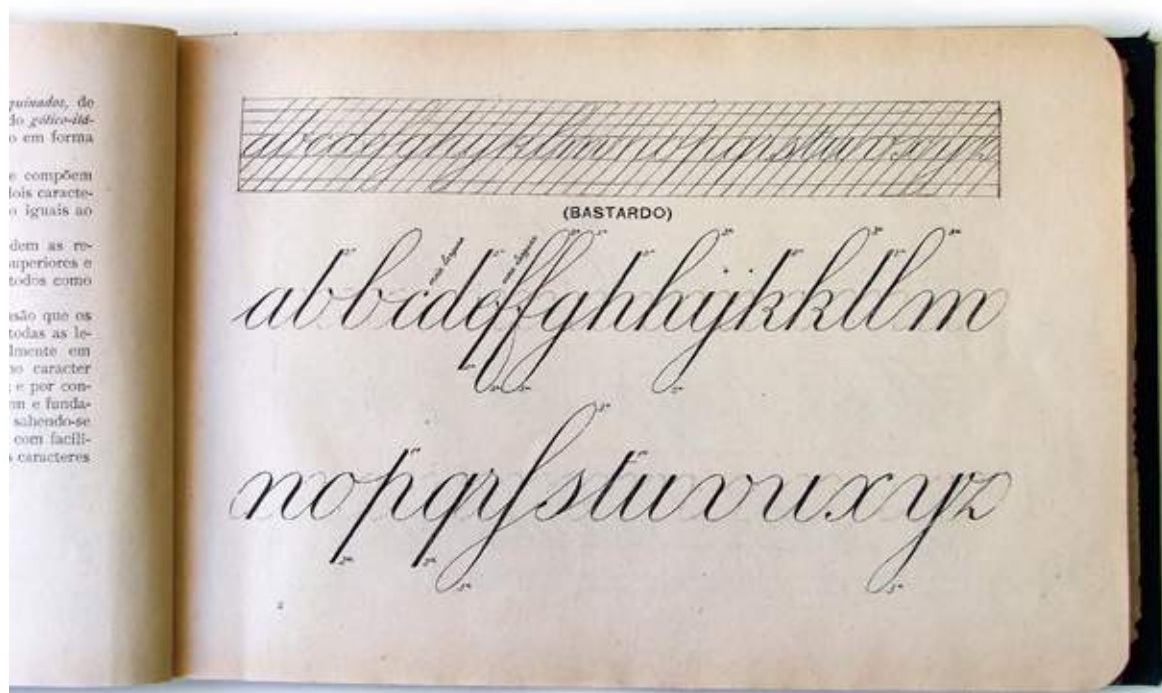 quinados, de
do gótico-itá-
o em forma
e compõem
dois caracte-
o iguais ao
dem as re-
superiores e
todos como
asão que os
todas as le-
lmente em
no caracter
; e por con-
em e funda-
sabendo-se
com facili-
s caracteres
abcdefghijklmnopqrstuvxyz
(BASTARDO)
abbcdefffghhijkkllm
nopqrſstuvuxyz